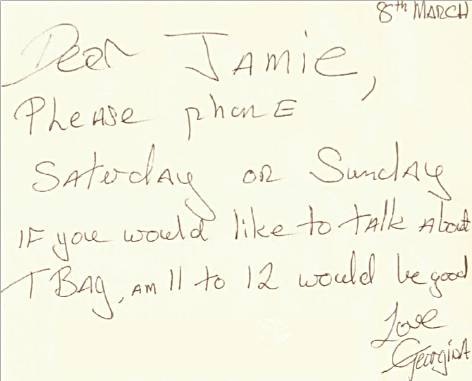 8th MARCH
Dear Jamie,
Please phone
Saturday or Sunday
IF you would like to talk about
TBag, AM 11 to 12 would be good
Love
Georgia